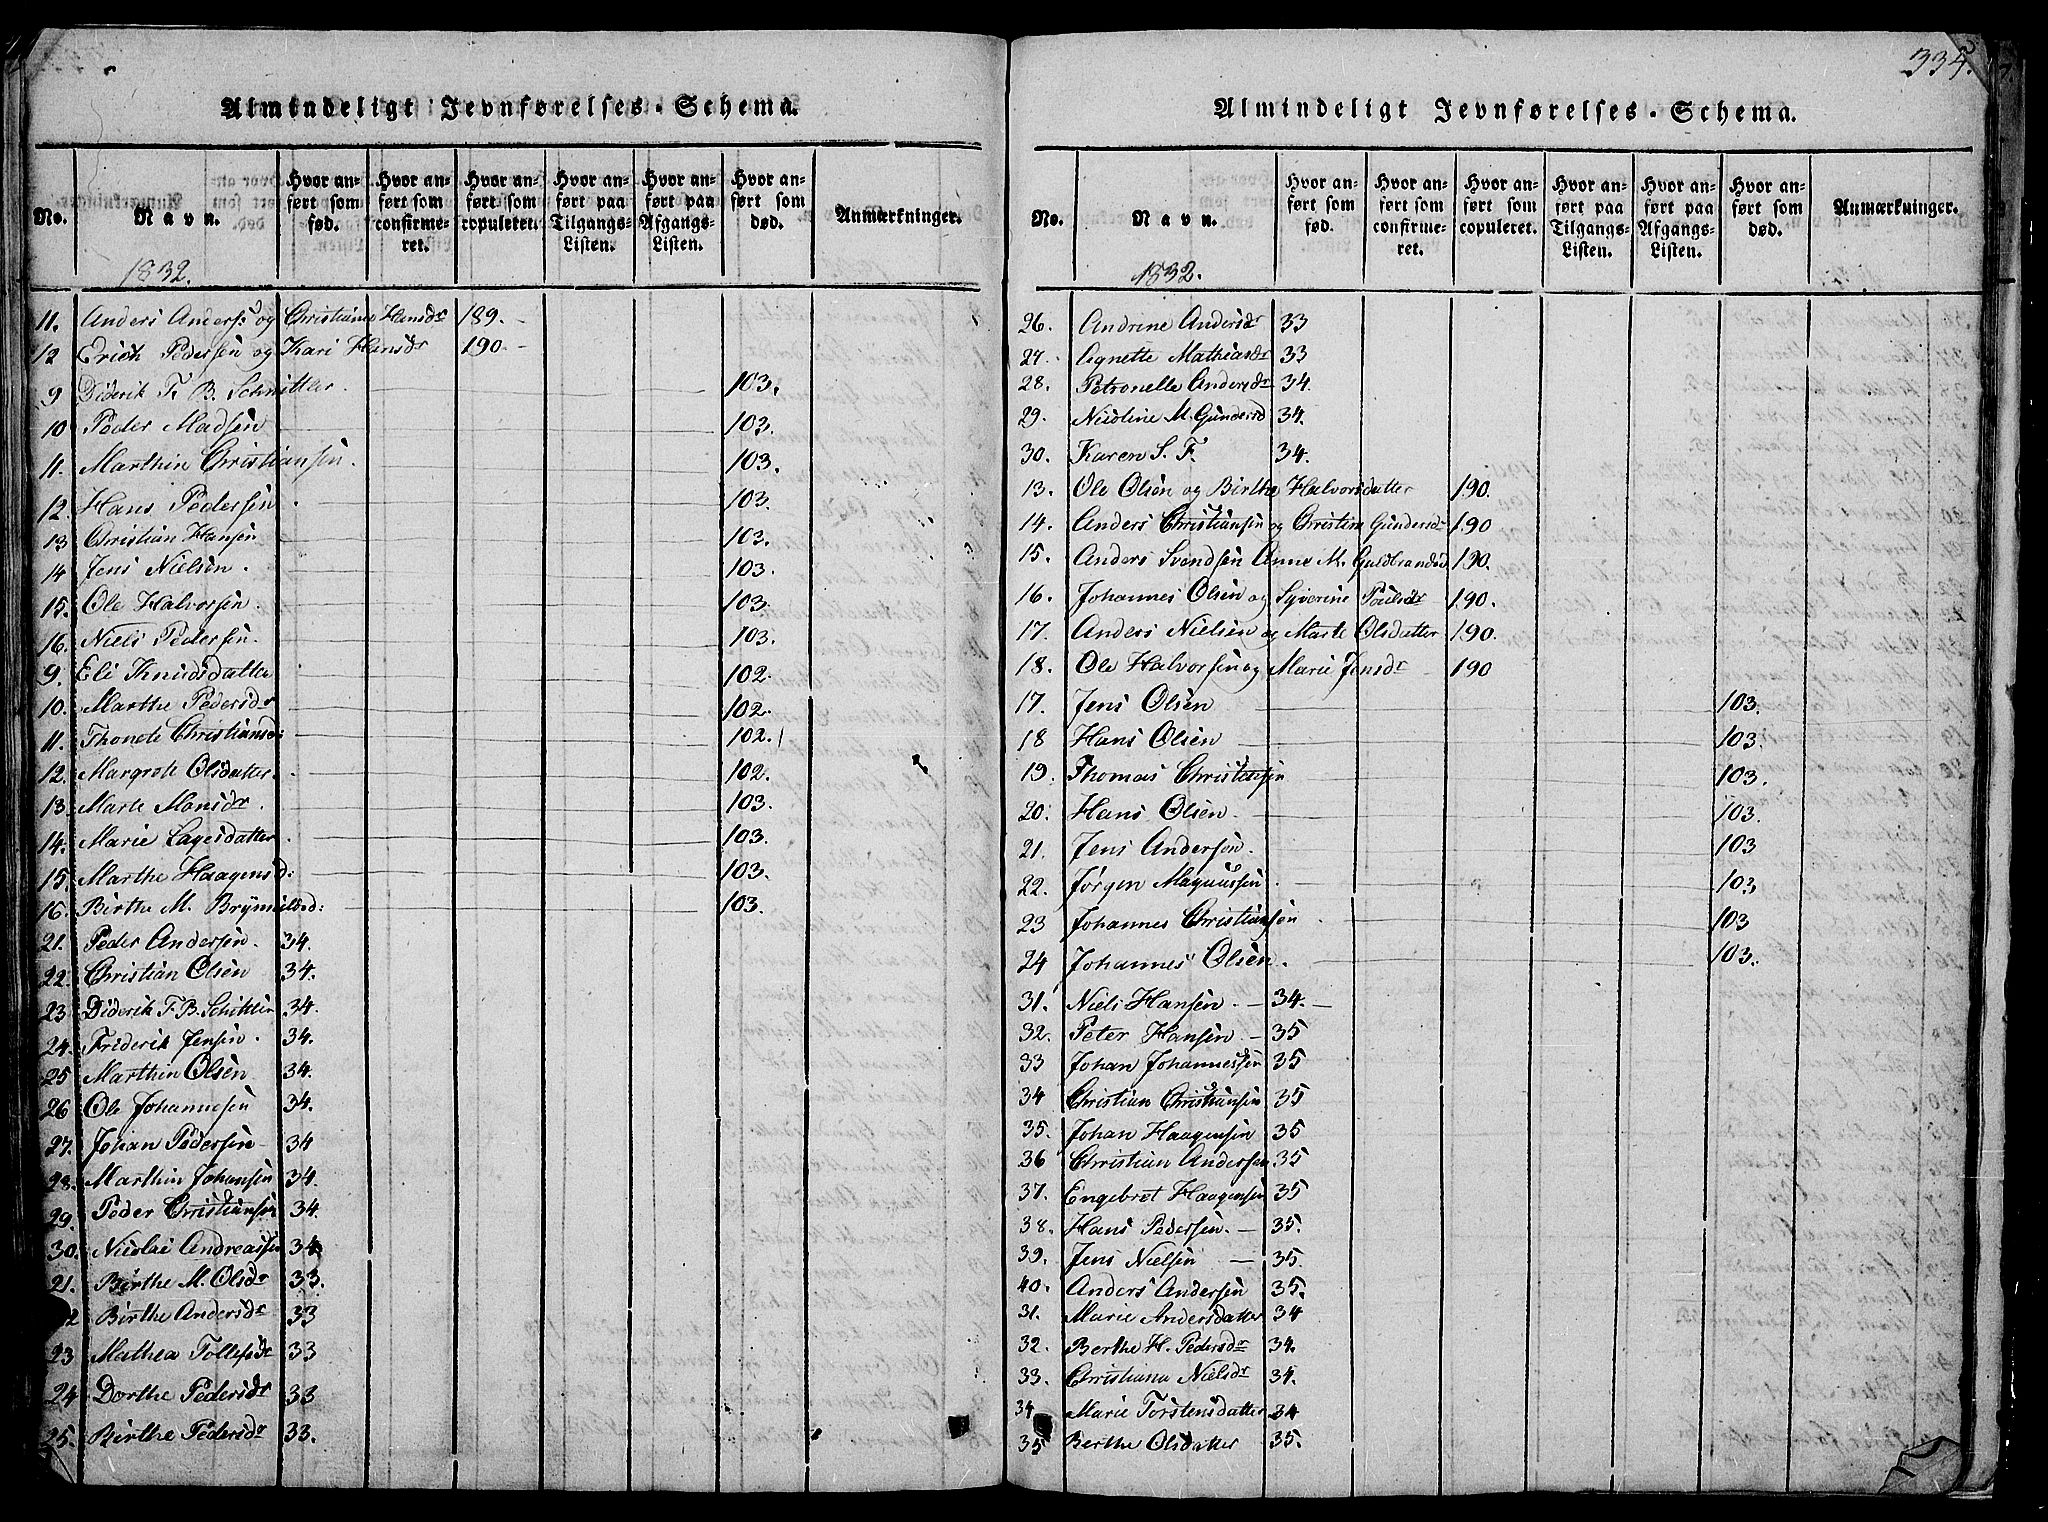 Almindeligt Jevnførelses-Schema.
No. Navn. Hvor anført som fød. Hvor anført som confirmeret. Hvor anført som copuleret. Hvor anført paa Tilgangs-Listen. Hvor anført paa Afgangs-Listen. Hvor anført som død. Anmærkninger.
1832.
11. Anders Anders: og Christiane Hansdr 189.
12 Erich Pedersen og Kari Hansdr 190.
9 Diderik F. B. Schnitler. 103.
10 Peder Madsen 103.
11. Marthin Christiansen. 103.
12. Hans Pedersen 103.
13 Christian Hansen 103.
14 Jens Nielsen. 103.
15. Ole Halvorsen. 103.
16. Niels Pedersen. 103.
9. Eli Knudsdatter 102.
10. Marthe Pedersdr 102.
11. Thonete Christiansd: 102.
12. Margrete Olsdatter. 102.
13. Marte Monsdr. 103.
14. Marie Lagesdatter. 103.
15. Marthe Haagensd: 103.
16. Birthe M. 103.
21. Peder Andersen. 34.
22. Christian Olsen 34.
23 Diderik F. B. 34.
24. Friderik Jensen. 34.
25 Marthin Olsen 34.
26 Ole Johannesen 34.
27. Johan Pedersen 34
28. Marthin Johansen 34.
29. Peder Christiansen 34.
30. Nicolai Andreassen 34
21. Birthe M. Olsdr 33.
2 Birthe Andersdr 33
23 Mathea Tollefsdr 33
24 Dorthe Pedersdr 33
25. Birthe Pedersdr 33.
334.
Almindeligt Jevnførelses-Schema.
No. Navn. Hvor anført som fød. Hvor anført som confirmeret. Hvor anført som copuleret. Hvor anført paa Tilgangs-Listen. Hvor anført paa Afgangs-Listen. Hvor anført som død. Anmærkninger.
1832.
26. Andrine Andersdr 33
27. Agnette Mathiasdr 33
28. Petronelle Andersdr 34.
29. Nicoline M. Gundersd 34.
30. Karen S. F. 34.
13. Ole Olsen og Birthe Halvorsdatter 190.
14. Anders Christiansen og Christine Gundersdr 190
15. Anders Svendsen Anne M. Guldbrandsd 190.
16. Johannes Olsen og Syverine Poulsdr 190.
17. Anders Nielsen og Marte Olsdatter 190.
18. Ole Halvorsen og Marie Jensdr 190
17. Jens Olsen 103.
18 Hans Olsen 103.
19. Thomas Christensen 103.
20. Hans Olsen. 103.
21. Jens Andersen. 103
22. Jørgen Magnussen 103
23 Johannes Christiansen 103
24 Johannes Olsen. 103.
31. Niels Hansen. 34.
32. Peter Hansen 35
33 Johan Johannessen 35
34 Christian Christiansen 35
35. Johan Haagensen 35
36 Christian Andersen 35
37. Engebret Haagensen 35
38. Hans Pedersen. 35.
39. Jens Nielsen 35.
40. Anders Andersen 35.
31. Marie Andersdatter 34
32. Berthe H. Pedersdr 34.
33. Christiana Nielsdr 34.
34 Marie Torstensdatter 34
35 Berthe Olsdatter 35.